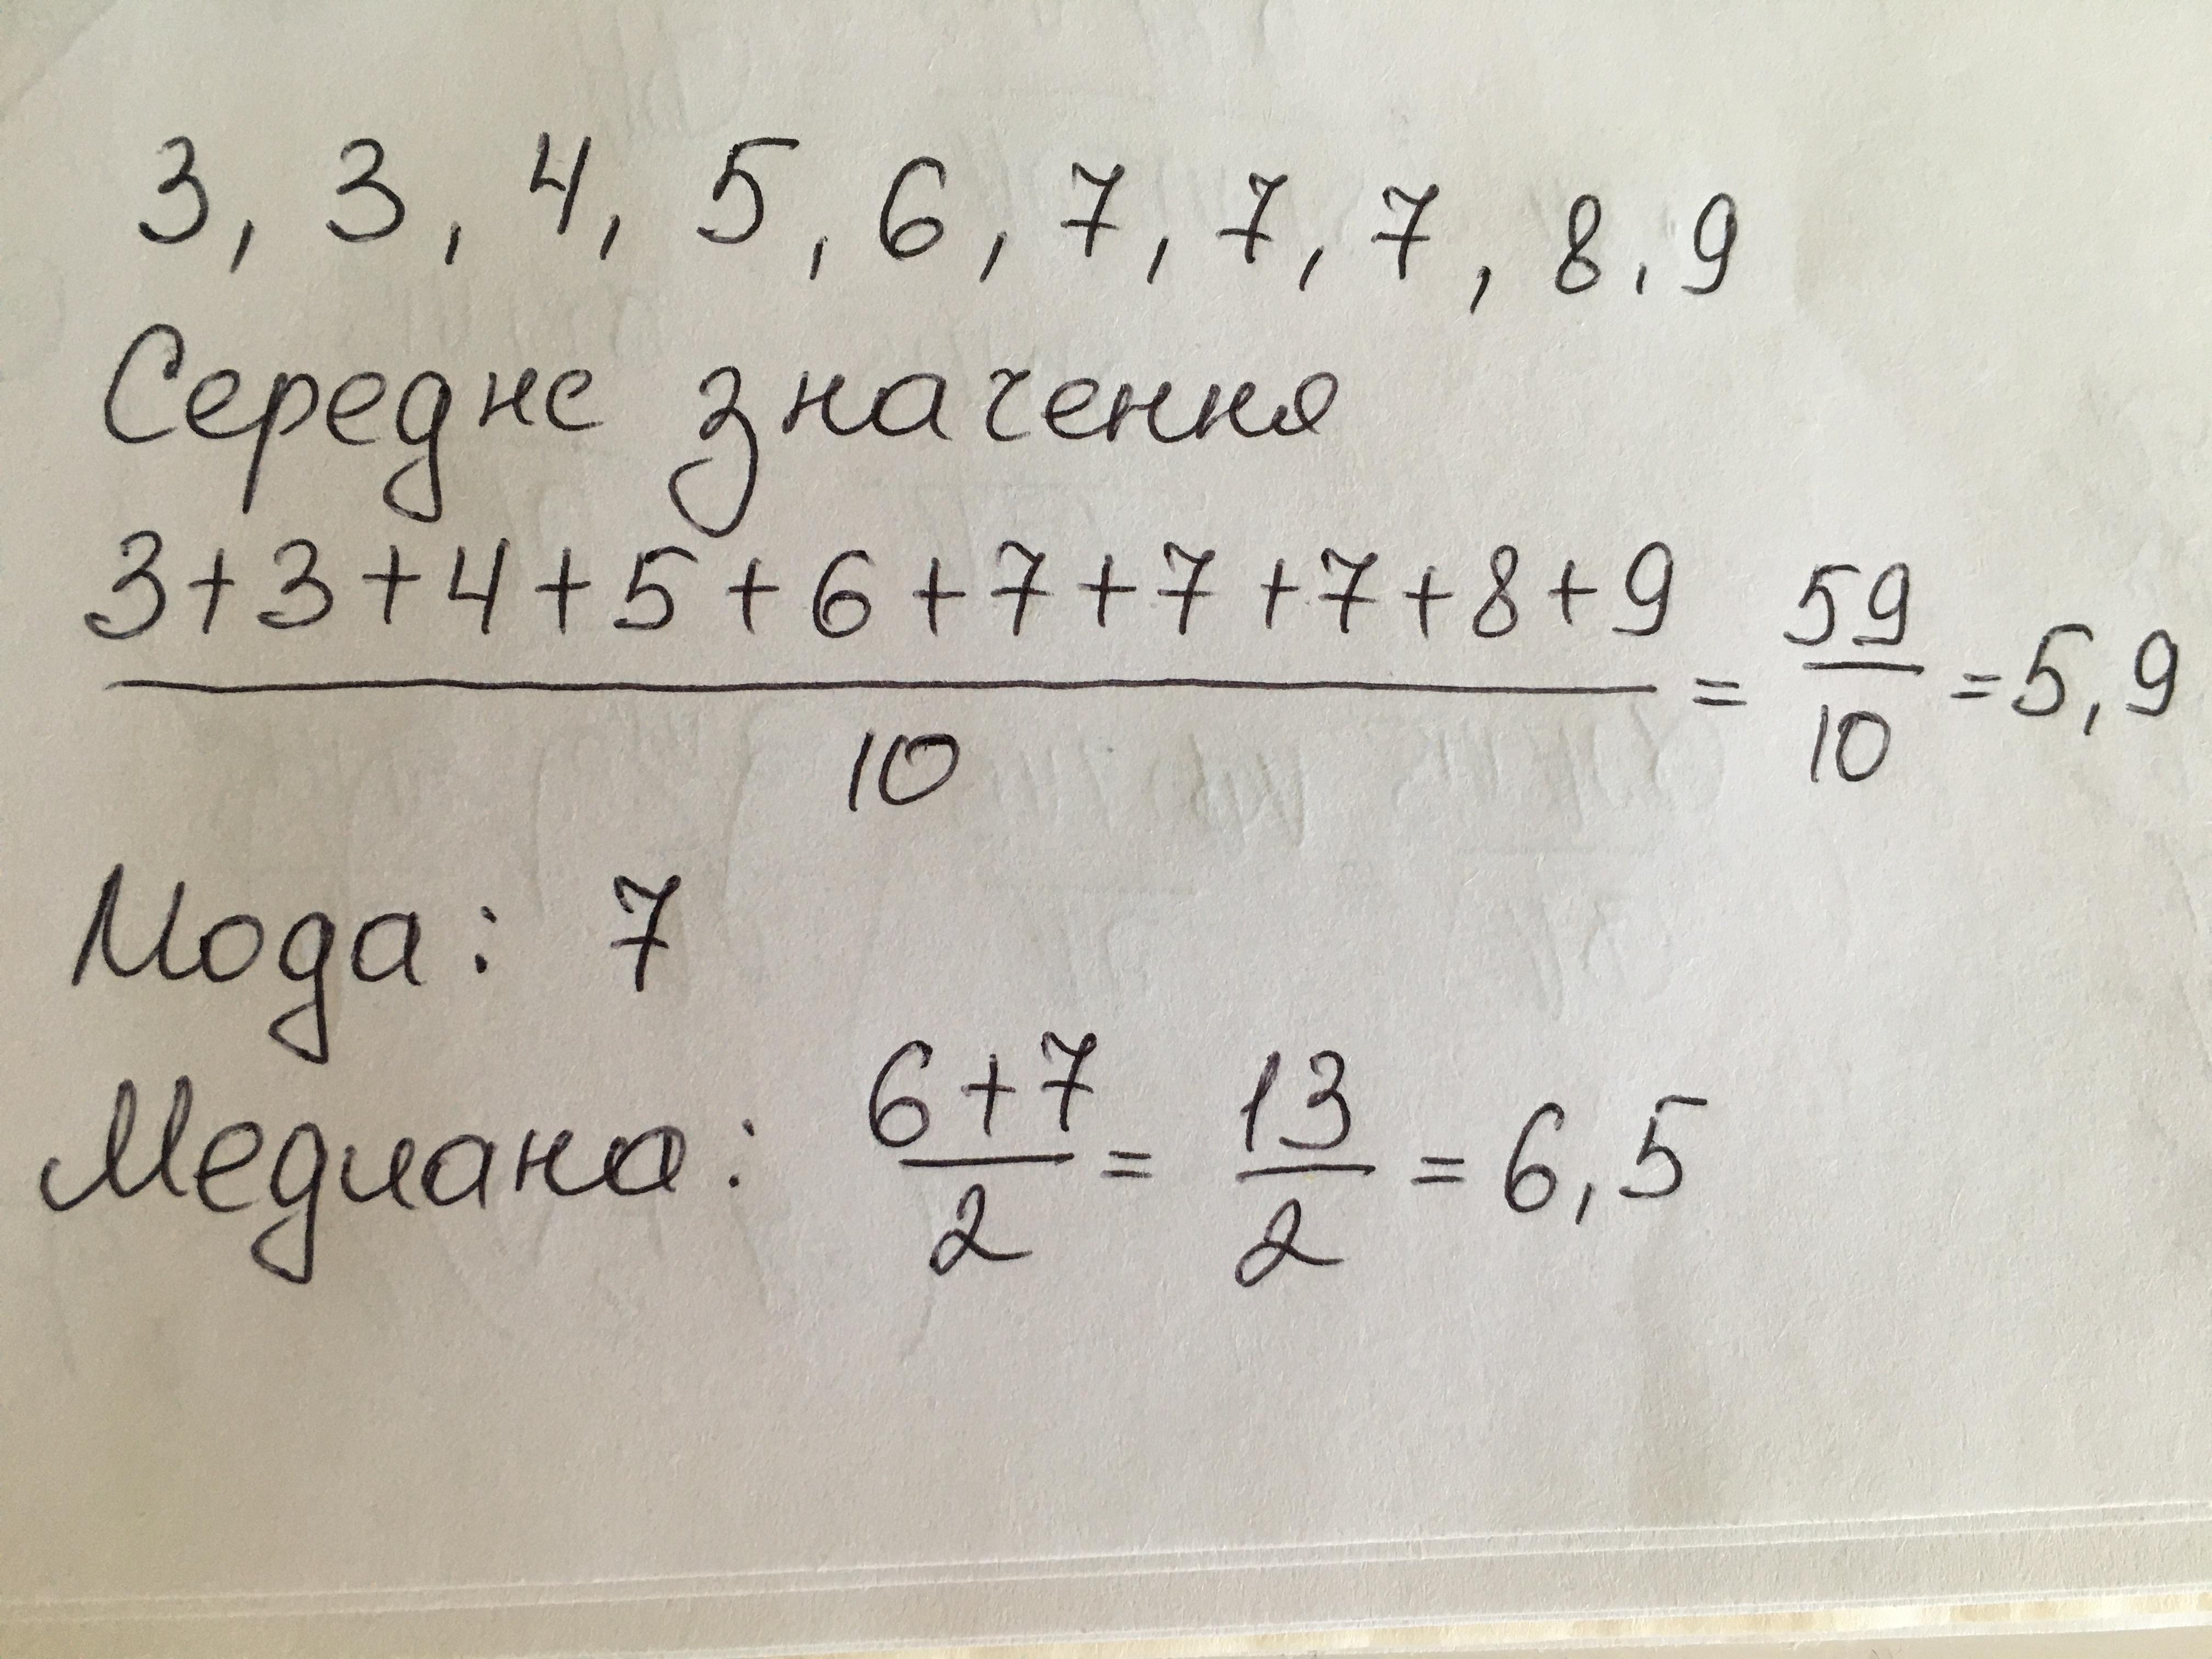 3, 3, 4, 5, 6, 7, 7, 7, 8, 9
Середнє значення
3+3+4+5+6+7+7+7+8+9 / 10 = 59/10 = 5,9
Мода: 7
Медиана: 6+7 / 2 = 13/2 = 6,5